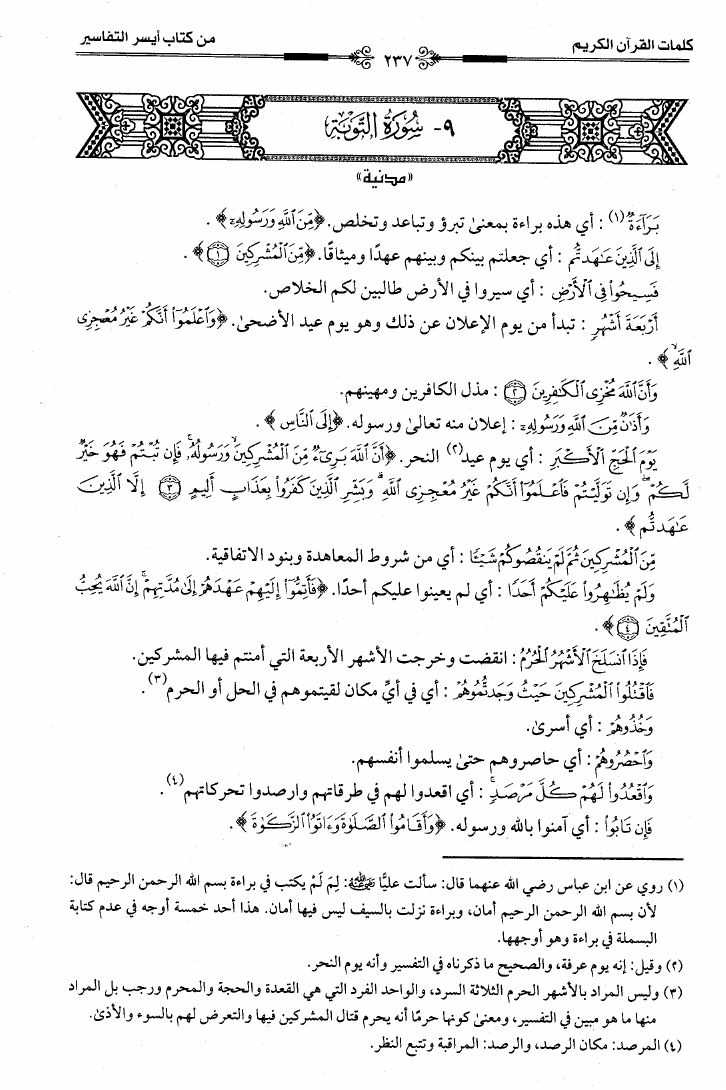 كلمات القرآن الكريم
٢٣٧
من كتاب أيسر التفاسير
٩- سُورَةُ التَّوْبَةِ
«مدنية»
بَرَآءَةٌ(١) : أي هذه براءة بمعنىٰ تبرؤ وتباعد وتخلص. ﴿مِّنَ ٱللَّهِ وَرَسُولِهِۦٓ﴾ .
إِلَى ٱلَّذِينَ عَـٰهَدتُّم : أي جعلتم بينكم وبينهم عهدًا وميثاقًا. ﴿مِّنَ ٱلْمُشْرِكِينَ ١﴾ .
فَسِيحُوا۟ فِى ٱلْأَرْضِ : أي سيروا في الأرض طالبين لكم الخلاص.
أَرْبَعَةَ أَشْهُرٍ : تبدأ من يوم الإعلان عن ذلك وهو يوم عيد الأضحىٰ. ﴿وَٱعْلَمُوٓا۟ أَنَّكُمْ غَيْرُ مُعْجِزِى
ٱللَّهِ ۙ﴾ .
وَأَنَّ ٱللَّهَ مُخْزِى ٱلْكَـٰفِرِينَ ٢ : مذل الكافرين ومهينهم.
وَأَذَٰنٌ مِّنَ ٱللَّهِ وَرَسُولِهِۦٓ : إعلان منه تعالىٰ ورسوله. ﴿إِلَى ٱلنَّاسِ﴾ .
يَوْمَ ٱلْحَجِّ ٱلْأَكْبَرِ : أي يوم عيد(٢) النحر. ﴿أَنَّ ٱللَّهَ بَرِىٓءٌ مِّنَ ٱلْمُشْرِكِينَ ۙ وَرَسُولُهُۥ ۚ فَإِن تُبْتُمْ فَهُوَ خَيْرٌ
لَّكُمْ ۖ وَإِن تَوَلَّيْتُمْ فَٱعْلَمُوٓا۟ أَنَّكُمْ غَيْرُ مُعْجِزِى ٱللَّهِ ۗ وَبَشِّرِ ٱلَّذِينَ كَفَرُوا۟ بِعَذَابٍ أَلِيمٍ ٣ إِلَّا ٱلَّذِينَ
عَـٰهَدتُّم﴾ .
مِّنَ ٱلْمُشْرِكِينَ ثُمَّ لَمْ يَنقُصُوكُمْ شَيْـًٔا : أي من شروط المعاهدة وبنود الاتفاقية.
وَلَمْ يُظَـٰهِرُوا۟ عَلَيْكُمْ أَحَدًا : أي لم يعينوا عليكم أحدًا. ﴿فَأَتِمُّوٓا۟ إِلَيْهِمْ عَهْدَهُمْ إِلَىٰ مُدَّتِهِمْ ۚ إِنَّ ٱللَّهَ يُحِبُّ
ٱلْمُتَّقِينَ ٤﴾ .
فَإِذَا ٱنسَلَخَ ٱلْأَشْهُرُ ٱلْحُرُمُ : انقضت وخرجت الأشهر الأربعة التي أمنتم فيها المشركين.
فَٱقْتُلُوا۟ ٱلْمُشْرِكِينَ حَيْثُ وَجَدتُّمُوهُمْ : أي في أيِّ مكان لقيتموهم في الحل أو الحرم(٣).
وَخُذُوهُمْ : أي أسرىٰ.
وَٱحْصُرُوهُمْ : أي حاصروهم حتىٰ يسلموا أنفسهم.
وَٱقْعُدُوا۟ لَهُمْ كُلَّ مَرْصَدٍ ۚ : أي اقعدوا لهم في طرقاتهم وارصدوا تحركاتهم(٤).
فَإِن تَابُوا۟ : أي آمنوا بالله ورسوله. ﴿وَأَقَامُوا۟ ٱلصَّلَوٰةَ وَءَاتَوُا۟ ٱلزَّكَوٰةَ﴾ .
(١) روي عن ابن عباس رضي الله عنهما قال: سألت عليًّا رضي الله عنه: لِمَ لَمْ يكتب في براءة بسم الله الرحمن الرحيم قال:
لأن بسم الله الرحمن الرحيم أمان، وبراءة نزلت بالسيف ليس فيها أمان. هذا أحد خمسة أوجه في عدم كتابة
البسملة في براءة وهو أوجهها.
(٢) وقيل: إنه يوم عرفة، والصحيح ما ذكرناه في التفسير وأنه يوم النحر.
(٣) وليس المراد بالأشهر الحرم الثلاثة السرد، والواحد الفرد التي هي القعدة والحجة والمحرم ورجب بل المراد
منها ما هو مبين في التفسير، ومعنىٰ كونها حرمًا أنه يحرم قتال المشركين فيها والتعرض لهم بالسوء والأذىٰ.
(٤) المرصد: مكان الرصد، والرصد: المراقبة وتتبع النظر.